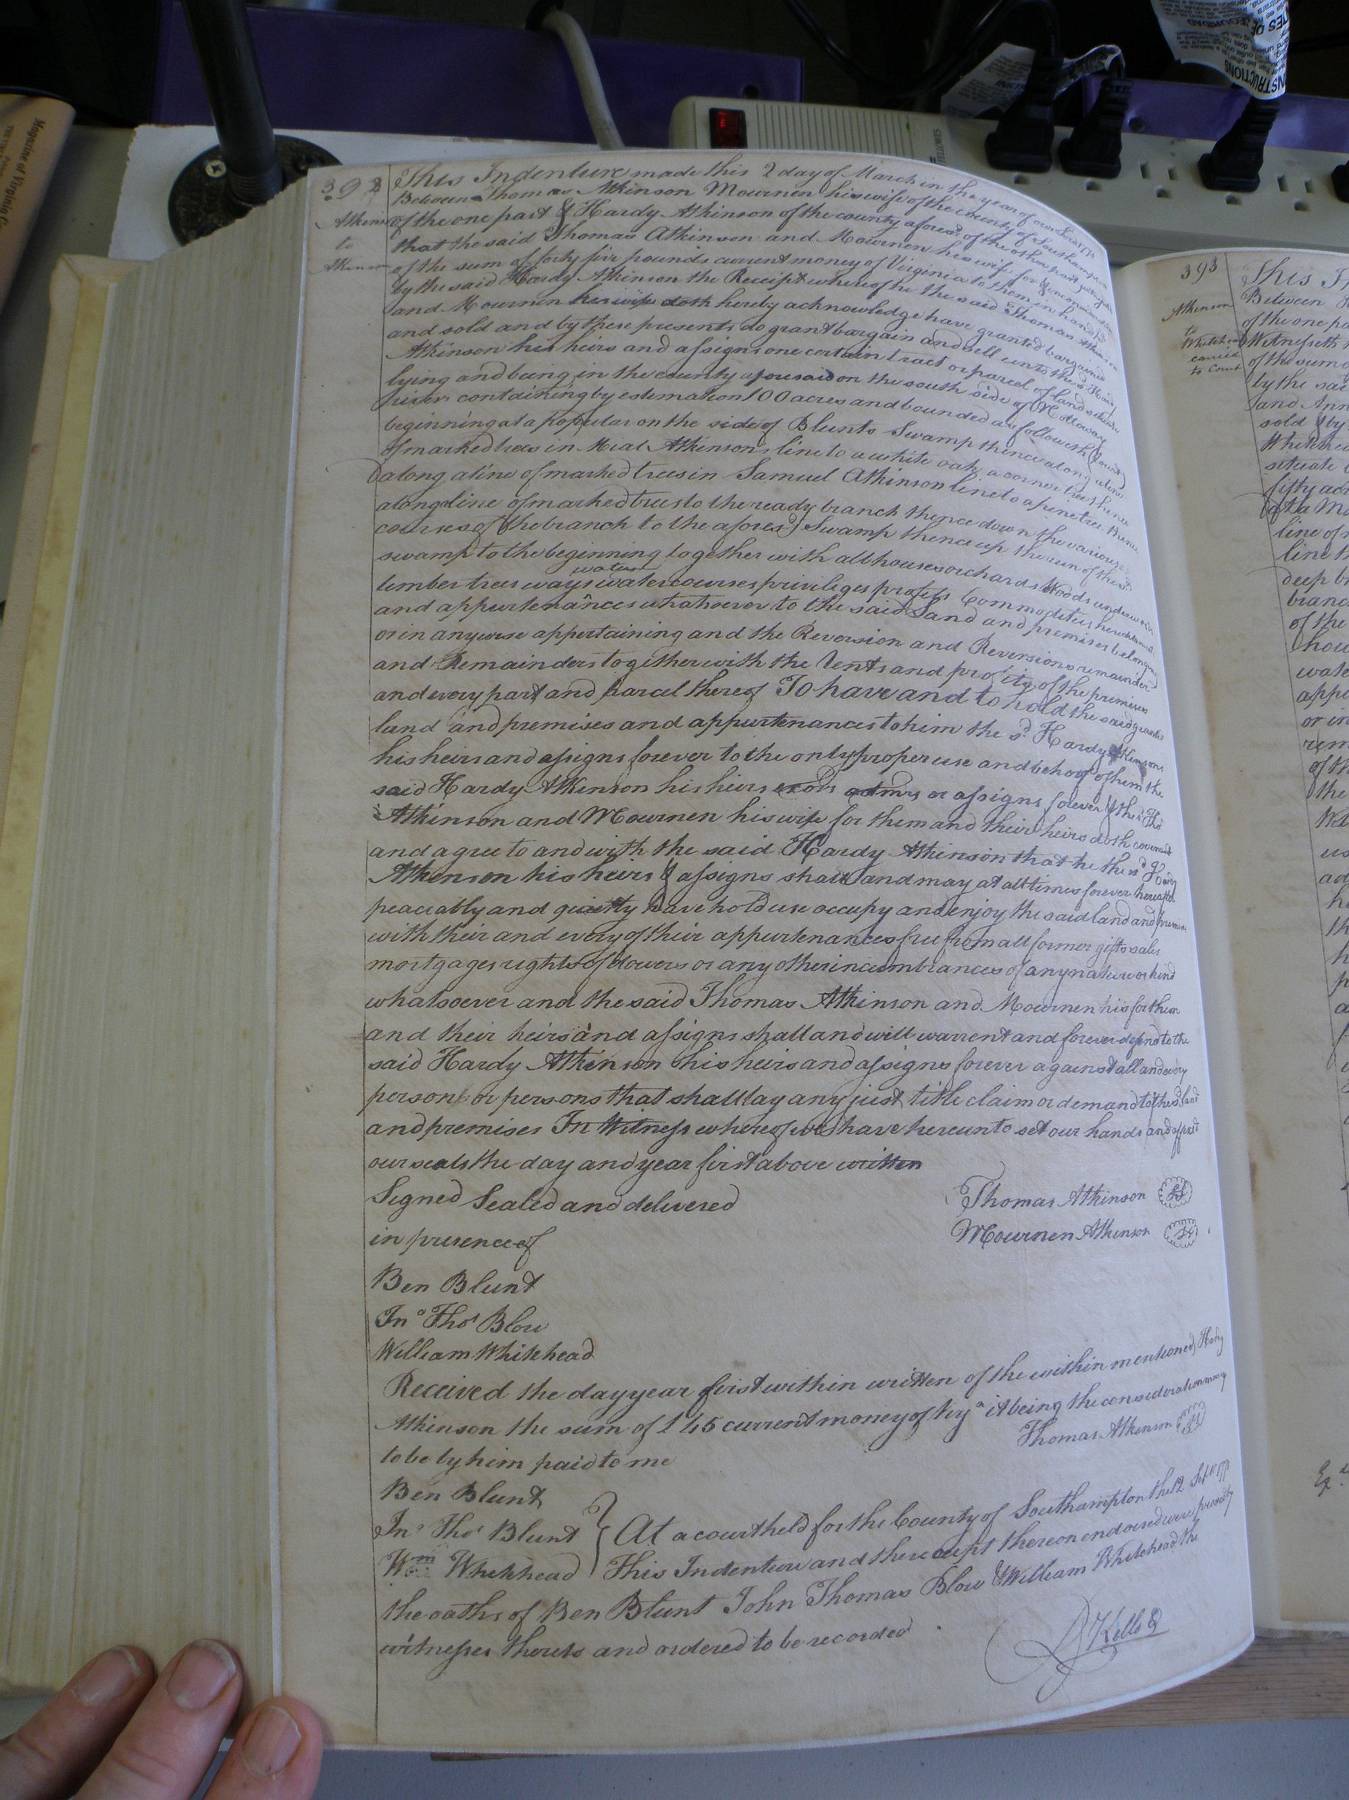 392
Atkinson
to
Atkinson
This Indenture made this 2 day of March in the year of our Lord
Between Thomas Atkinson Mournen his wife of the county of Southampton
of the one part & Hardy Atkinson of the county aforesd. of the other part
that the said Thomas Atkinson and Mournen his wife for & in consideration
of the sum of forty five pounds current money of Virginia to them in hand
by the said Hardy Atkinson the Receipt whereof he the said Thomas Atkinson
and Mournen her wife doth hereby acknowledge have granted bargained
and sold and by these presents do grant bargain and sell unto the sd. Hardy
Atkinson his heirs and assigns one certain tract or parcel of land situate
lying and being in the county aforesaid on the south side of Nottoway
River containing by estimation 100 acres and bounded as followeth
beginning at a Popular on the side of Blunts Swamp thence along a line
of marked trees in Mial Atkinsons line to a white oak a corner tree thence
along a line of marked trees in Samuel Atkinson line to a pine tree thence
along a line of marked trees to the ready branch thence down the various
courses of the branch to the aforesd. Swamp thence up the run of the sd.
swamp to the beginning together with all houses orchards Woods underwoods
timber trees ways water water courses privileges profits Commodities
and appurtenances whatsoever to the said Land and premises belonging
or in anywise appertaining and the Reversion and Reversions remainder
and Remainders together with the rents and profits of the premises
and every part and parcel thereof To have and to hold the said granted
land and premises and appurtenances to him the sd. Hardy Atkinson
his heirs and assigns forever to the only proper use and behoof of them the
said Hardy Atkinson his heirs exors admrs or assigns forever & the sd. Tho
Atkinson and Mournen his wife for them and their heirs doth covenant
and agree to and with the said Hardy Atkinson that he the sd. Hardy
Atkinson his heirs & assigns shall and may at all times forever hereafter
peaceably and quietly have hold use occupy and enjoy the said land and premises
with their and every of their appurtenances free from all former gifts sales
mortgages rights of dowers or any other incumbrances of any nature or kind
whatsoever and the said Thomas Atkinson and Mournen his for them
and their heirs and assigns shall and will warrent and forever defend to the
said Hardy Atkinson his heirs and assigns forever against all and every
person or persons that shall lay any just title claim or demand to the sd. land
and premises In Witness whereof we have hereunto set our hands and affixt
our seals the day and year first above written
Signed Sealed and delivered
in presence of
Thomas Atkinson LS
Mournen Atkinson LS
Ben Blunt
Jno. Thos. Blow
William Whitehead
Received the day year first within written of the within mentioned Hardy
Atkinson the sum of £45 current money of Virga it being the consideration money
to be by him paid to me
Thomas Atkinson LS
Ben Blunt
Jno. Thos. Blunt
Wm Whitehead
At a court held for the County of Southampton the 12
This Indenture and the receipt thereon endorsed were proved by
the oaths of Ben Blunt John Thomas Blow & William Whitehead the
witnesses thereto and ordered to be recorded
Kello
393
Atkinson
to
Whitehead
carried
to Court
This
Between
of the one
Witnesseth
of the sum
by the said
and Ann
sold & by
situate
fifty
line of
deep
of the
Magazine of Virginia
INSTRUCTIONS
FELLOWES